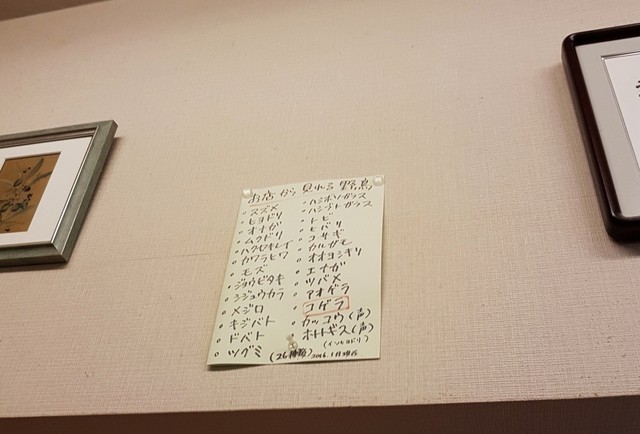 お店から見れる野鳥
・スズメ
・ヒヨドリ
・オナガ
・ムクドリ
・ハクセキレイ
・カワラヒワ
・モズ
・ジョウビタキ
・シジュウカラ
・メジロ
・キジバト
・ドバト
・ツグミ
・ハシボソガラス
・ハシブトガラス
・トビ
・ヒバリ
・コサギ
・カルガモ
・オオヨシキリ
・エナガ
・ツバメ
・アオゲラ
・コゲラ
・カッコウ(声)
・ホトトギス(声)
(イソヒヨドリ)
(26種類) 2016.1月現在